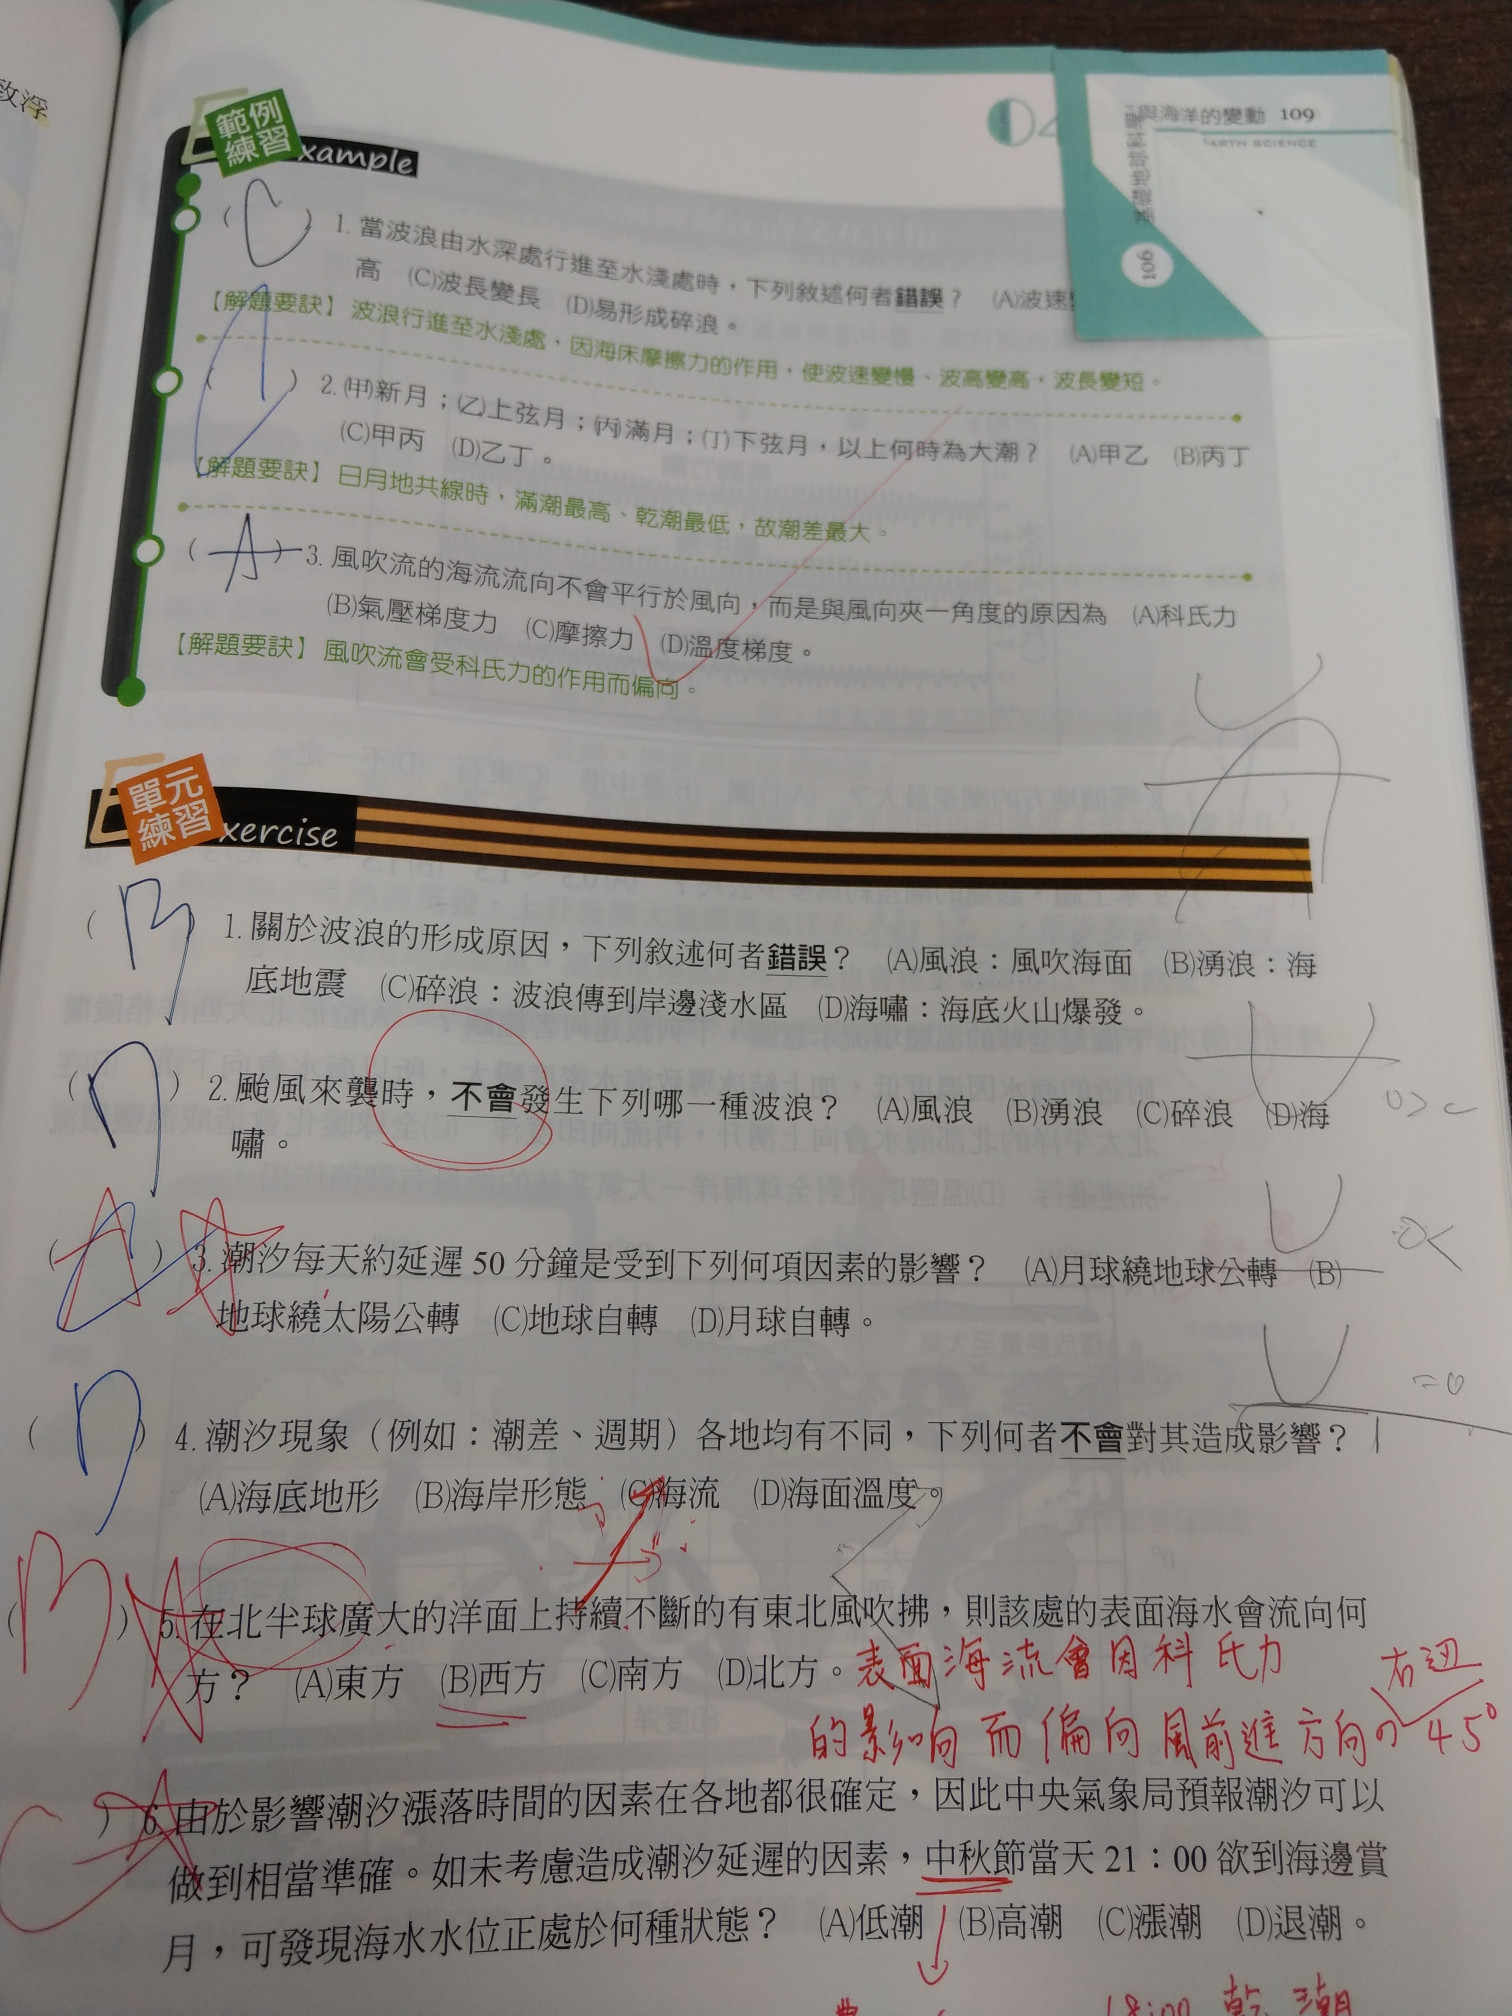 致浮
與海洋的變動 109
EARTH SCIENCE
基礎地球科學
106
範例
練習
Example
( C ) 1. 當波浪由水深處行進至水淺處時，下列敘述何者錯誤？ (A)波速
高 (C)波長變長 (D)易形成碎浪。
【解題要訣】波浪行進至水淺處，因海床摩擦力的作用，使波速變慢、波高變高，波長變短。
( ) 2. (甲)新月；(乙)上弦月；(丙)滿月；(丁)下弦月，以上何時為大潮？ (A)甲乙 (B)丙丁
(C)甲丙 (D)乙丁。
【解題要訣】日月地共線時，滿潮最高、乾潮最低，故潮差最大。
( A ) 3. 風吹流的海流流向不會平行於風向，而是與風向夾一角度的原因為 (A)科氏力
(B)氣壓梯度力 (C)摩擦力 (D)溫度梯度。
【解題要訣】風吹流會受科氏力的作用而偏向。
單元
練習
Exercise
( B ) 1. 關於波浪的形成原因，下列敘述何者錯誤？ (A)風浪：風吹海面 (B)湧浪：海
底地震 (C)碎浪：波浪傳到岸邊淺水區 (D)海嘯：海底火山爆發。
( D ) 2. 颱風來襲時，不會發生下列哪一種波浪？ (A)風浪 (B)湧浪 (C)碎浪 (D)海
嘯。
( A ) 3. 潮汐每天約延遲 50 分鐘是受到下列何項因素的影響？ (A)月球繞地球公轉 (B)
地球繞太陽公轉 (C)地球自轉 (D)月球自轉。
=0
( D ) 4. 潮汐現象（例如：潮差、週期）各地均有不同，下列何者不會對其造成影響？
(A)海底地形 (B)海岸形態 (C)海流 (D)海面溫度。
( B ) 5. 在北半球廣大的洋面上持續不斷的有東北風吹拂，則該處的表面海水會流向何
方？ (A)東方 (B)西方 (C)南方 (D)北方。
表面海流會因科氏力
右邊
的影响而偏向風前進方向の 45°
C ) 6. 由於影響潮汐漲落時間的因素在各地都很確定，因此中央氣象局預報潮汐可以
做到相當準確。如未考慮造成潮汐延遲的因素，中秋節當天 21：00 欲到海邊賞
月，可發現海水水位正處於何種狀態？ (A)低潮 (B)高潮 (C)漲潮 (D)退潮。
18:00 乾潮